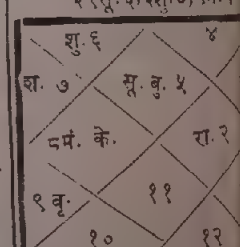 शु. ६
४
श. ७
सू. बु. ५
८ मं. के.
रा. २
९ वृ.
११
१०
१२